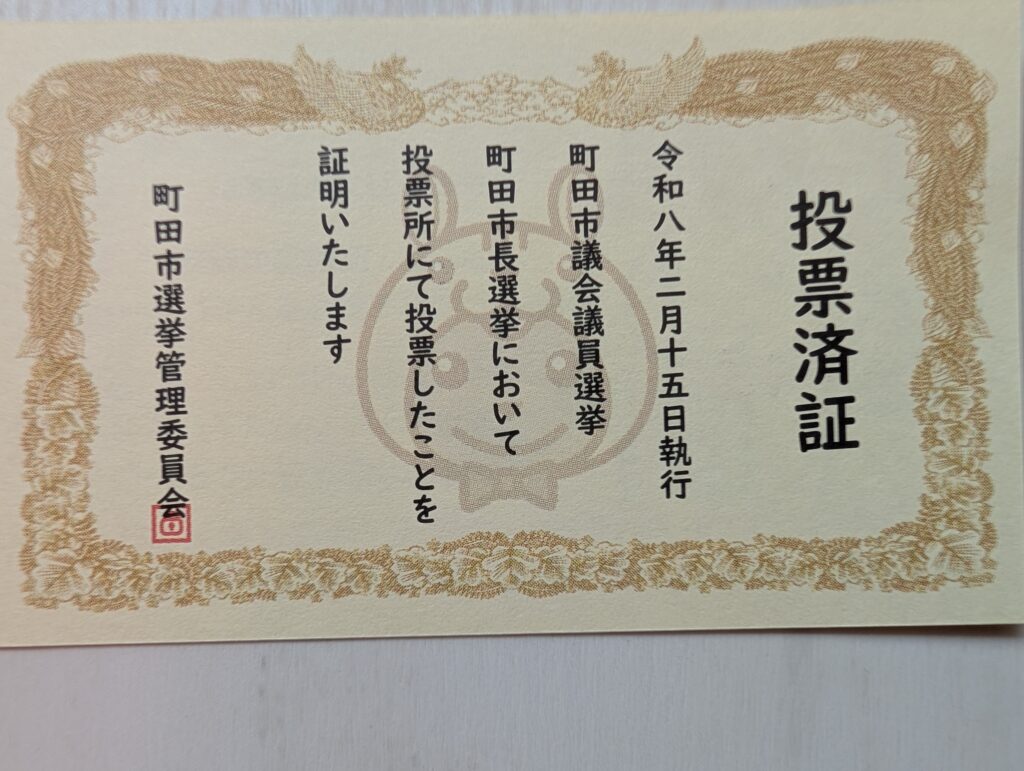 投票済証
令和八年二月十五日執行
町田市議会議員選挙
町田市長選挙において
投票所にて投票したことを
証明いたします
町田市選挙管理委員会